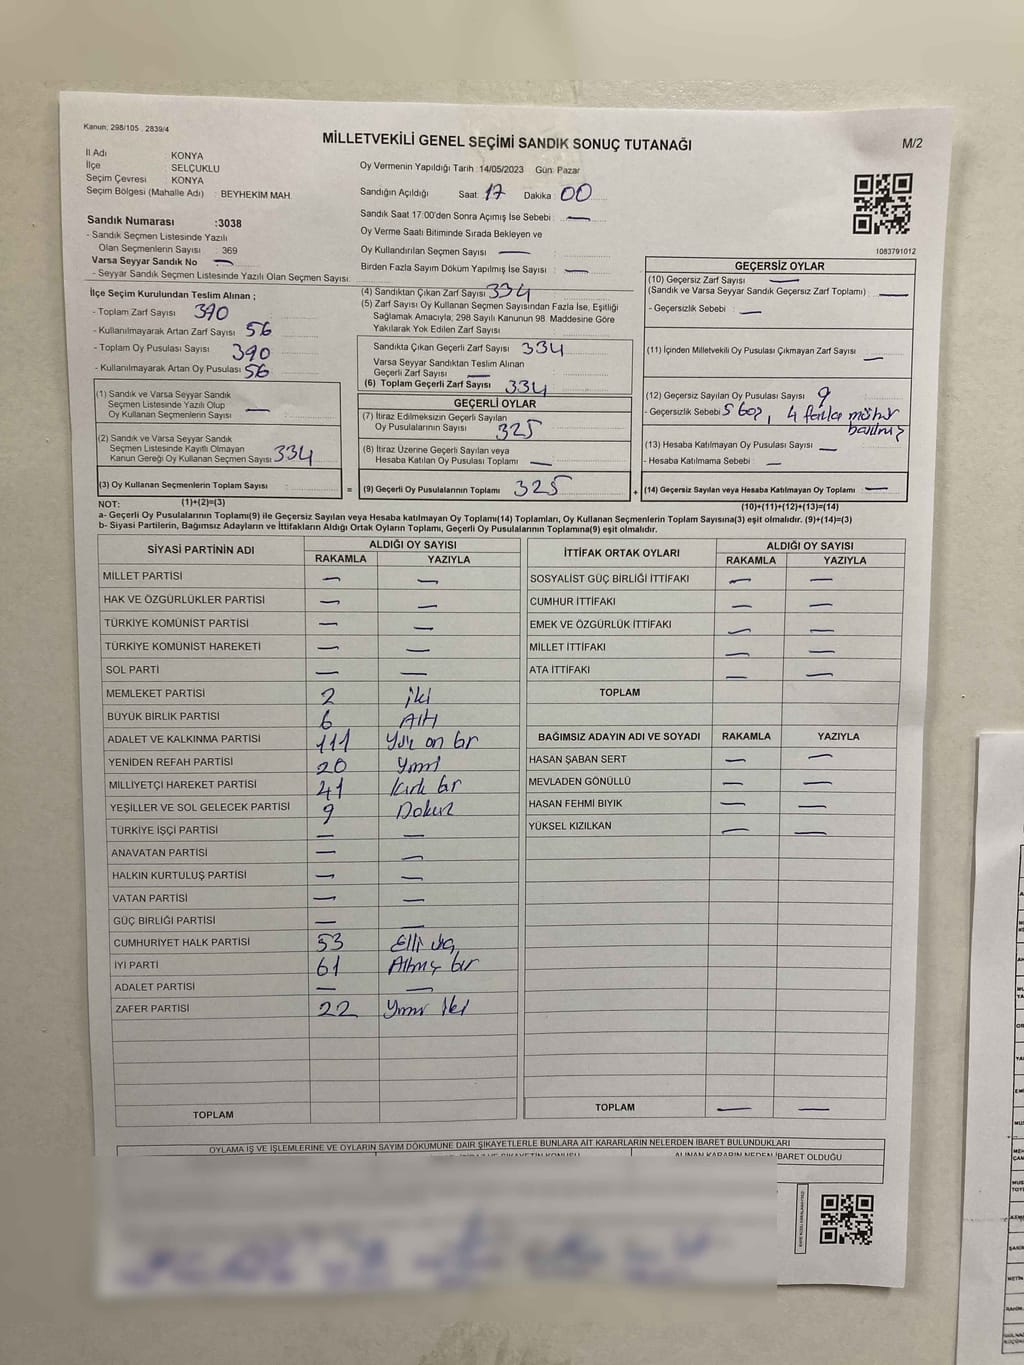 Kanun; 298/105 , 2839/4
MİLLETVEKİLİ GENEL SEÇİMİ SANDIK SONUÇ TUTANAĞI
M/2
İl Adı KONYA
İlçe SELÇUKLU
Seçim Çevresi KONYA
Seçim Bölgesi (Mahalle Adı) : BEYHEKİM MAH.
Sandık Numarası :3038
- Sandık Seçmen Listesinde Yazılı
Olan Seçmenlerin Sayısı : 369
Varsa Seyyar Sandık No —
- Seyyar Sandık Seçmen Listesinde Yazılı Olan Seçmen Sayısı:
Oy Vermenin Yapıldığı Tarih : 14/05/2023 Gün: Pazar
Sandığın Açıldığı Saat: 17 Dakika: 00
Sandık Saat 17:00'den Sonra Açımış İse Sebebi : —
Oy Verme Saati Bitiminde Sırada Bekleyen ve
Oy Kullandırılan Seçmen Sayısı — :
Birden Fazla Sayım Döküm Yapılmış İse Sayısı : —
1083791012
İlçe Seçim Kurulundan Teslim Alınan ;
- Toplam Zarf Sayısı : 390
- Kullanılmayarak Artan Zarf Sayısı : 56
- Toplam Oy Pusulası Sayısı : 390
- Kullanılmayarak Artan Oy Pusulası : 56
(1) Sandık ve Varsa Seyyar Sandık
Seçmen Listesinde Yazılı Olup
Oy Kullanan Seçmenlerin Sayısı : —
(2) Sandık ve Varsa Seyyar Sandık
Seçmen Listesinde Kayıtlı Olmayan
Kanun Gereği Oy Kullanan Seçmen Sayısı : 334
(3) Oy Kullanan Seçmenlerin Toplam Sayısı :
(1)+(2)=(3)
(4) Sandıktan Çıkan Zarf Sayısı : 334
(5) Zarf Sayısı Oy Kullanan Seçmen Sayısından Fazla İse, Eşitliği
Sağlamak Amacıyla; 298 Sayılı Kanunun 98. Maddesine Göre
Yakılarak Yok Edilen Zarf Sayısı :
Sandıkta Çıkan Geçerli Zarf Sayısı : 334
Varsa Seyyar Sandıktan Teslim Alınan
Geçerli Zarf Sayısı : —
(6) Toplam Geçerli Zarf Sayısı : 334
GEÇERLİ OYLAR
(7) İtiraz Edilmeksizin Geçerli Sayılan
Oy Pusulalarının Sayısı : 325
(8) İtiraz Üzerine Geçerli Sayılan veya
Hesaba Katılan Oy Pusulası Toplamı : —
= (9) Geçerli Oy Pusulalarının Toplamı : 325 +
GEÇERSİZ OYLAR
(10) Geçersiz Zarf Sayısı —
(Sandık ve Varsa Seyyar Sandık Geçersiz Zarf Toplamı) : —
- Geçersizlik Sebebi : —
(11) İçinden Milletvekili Oy Pusulası Çıkmayan Zarf Sayısı : —
(12) Geçersiz Sayılan Oy Pusulası Sayısı : 9
- Geçersizlik Sebebi : 5 boş, 4 fazla mühür
basılmış
(13) Hesaba Katılmayan Oy Pusulası Sayısı : —
- Hesaba Katılmama Sebebi : —
(14) Geçersiz Sayılan veya Hesaba Katılmayan Oy Toplamı : —
(10)+(11)+(12)+(13)=(14)
NOT:
a- Geçerli Oy Pusulalarının Toplamı(9) ile Geçersiz Sayılan veya Hesaba katılmayan Oy Toplamı(14) Toplamları, Oy Kullanan Seçmenlerin Toplam Sayısına(3) eşit olmalıdır. (9)+(14)=(3)
b- Siyasi Partilerin, Bağımsız Adayların ve İttifakların Aldığı Ortak Oyların Toplamı, Geçerli Oy Pusulalarının Toplamına(9) eşit olmalıdır.
SİYASİ PARTİNİN ADI ALDIĞI OY SAYISI
RAKAMLA YAZIYLA
MİLLET PARTİSİ — —
HAK VE ÖZGÜRLÜKLER PARTİSİ — —
TÜRKİYE KOMÜNİST PARTİSİ — —
TÜRKİYE KOMÜNİST HAREKETİ — —
SOL PARTİ — —
MEMLEKET PARTİSİ 2 iki
BÜYÜK BİRLİK PARTİSİ 6 Altı
ADALET VE KALKINMA PARTİSİ 111 Yüz on bir
YENİDEN REFAH PARTİSİ 20 Yirmi
MİLLİYETÇİ HAREKET PARTİSİ 41 Kırk bir
YEŞİLLER VE SOL GELECEK PARTİSİ 9 Dokuz
TÜRKİYE İŞÇİ PARTİSİ — —
ANAVATAN PARTİSİ — —
HALKIN KURTULUŞ PARTİSİ — —
VATAN PARTİSİ — —
GÜÇ BİRLİĞİ PARTİSİ — —
CUMHURİYET HALK PARTİSİ 53 Elli üç
İYİ PARTİ 61 Altmış bir
ADALET PARTİSİ — —
ZAFER PARTİSİ 22 Yirmi iki
TOPLAM
İTTİFAK ORTAK OYLARI ALDIĞI OY SAYISI
RAKAMLA YAZIYLA
SOSYALİST GÜÇ BİRLİĞİ İTTİFAKI — —
CUMHUR İTTİFAKI — —
EMEK VE ÖZGÜRLÜK İTTİFAKI — —
MİLLET İTTİFAKI — —
ATA İTTİFAKI — —
TOPLAM
BAĞIMSIZ ADAYIN ADI VE SOYADI RAKAMLA YAZIYLA
HASAN ŞABAN SERT — —
MEVLADEN GÖNÜLLÜ — —
HASAN FEHMİ BIYIK — —
YÜKSEL KIZILKAN — —
TOPLAM — —
OYLAMA İŞ VE İŞLEMLERİNE VE OYLARIN SAYIM DÖKÜMÜNE DAİR ŞİKAYETLERLE BUNLARA AİT KARARLARIN NELERDEN İBARET BULUNDUKLARI
ALINAN KARARIN NEDEN İBARET OLDUĞU